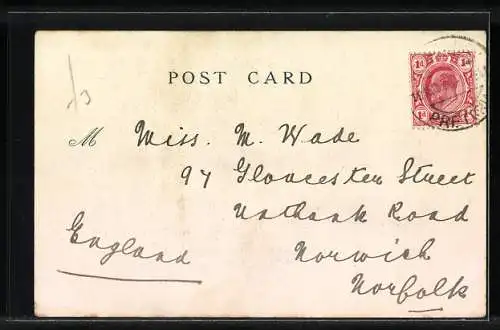 /3
POST CARD
1d 1d
PRETORIA
M Miss. M. Wade
97 Gloucester Street
Unthank Road
England
Norwich
Norfolk